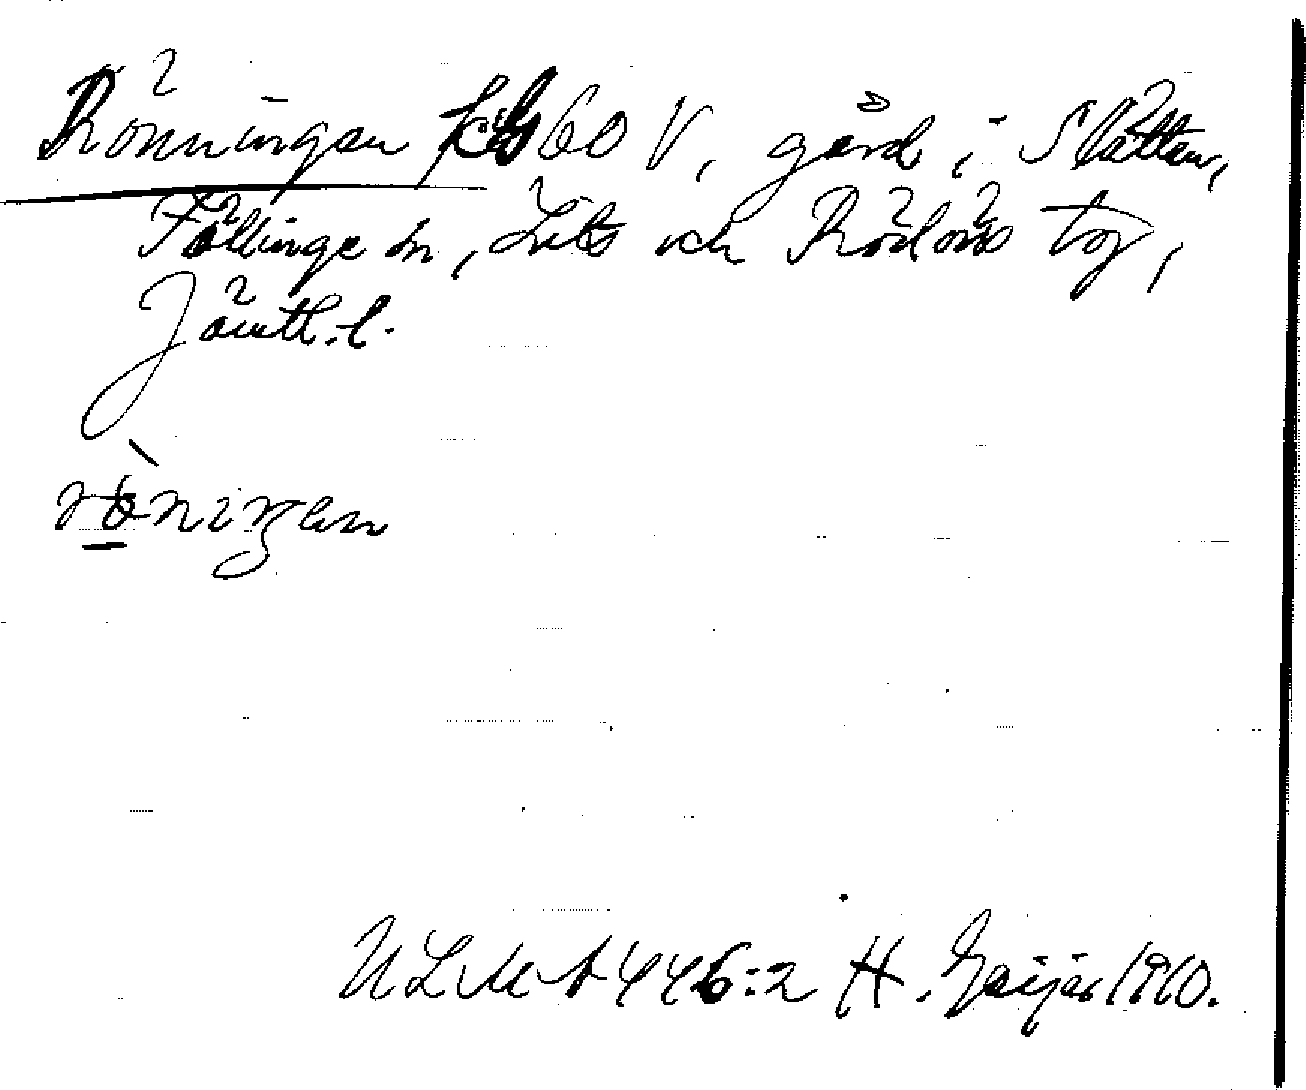 Rönningen 60 V, gård i Slåtten,
Föllinge sn, Lits och Rödöns tg,
Jämtl. l.
röniŋen
ULMA 446:2 H. Geijer 1910.